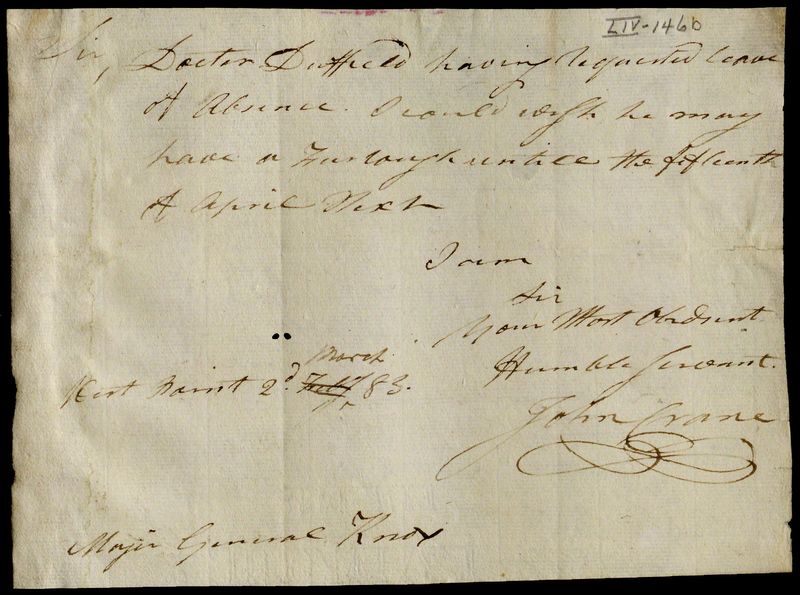 LIV-146b
Sir,
Doctor Duffield having requested leave
of Absence. I could wish he may
have a Furlough untill the fifteenth
of April Next
I am
Sir
Your Most Obedient
Humble Servant.
John Crane
March
West Point 2d. Feby 83.
Major General Knox